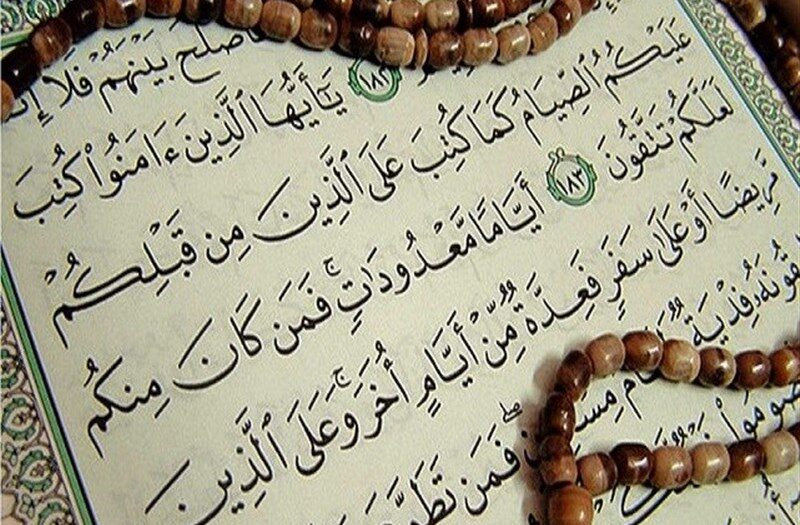 بَيْنَهُمْ فَلَا
١٨٢ يَٰٓأَيُّهَا ٱلَّذِينَ ءَامَنُوا۟ كُتِبَ
عَلَيْكُمُ ٱلصِّيَامُ كَمَا كُتِبَ عَلَى ٱلَّذِينَ مِن قَبْلِكُمْ
لَعَلَّكُمْ تَتَّقُونَ ١٨٣ أَيَّامًا مَّعْدُودَٰتٍ ۚ فَمَن كَانَ مِنكُم
مَّرِيضًا أَوْ عَلَىٰ سَفَرٍ فَعِدَّةٌ مِّنْ أَيَّامٍ أُخَرَ ۚ وَعَلَى ٱلَّذِينَ
فِدْيَةٌ ۖ فَمَن